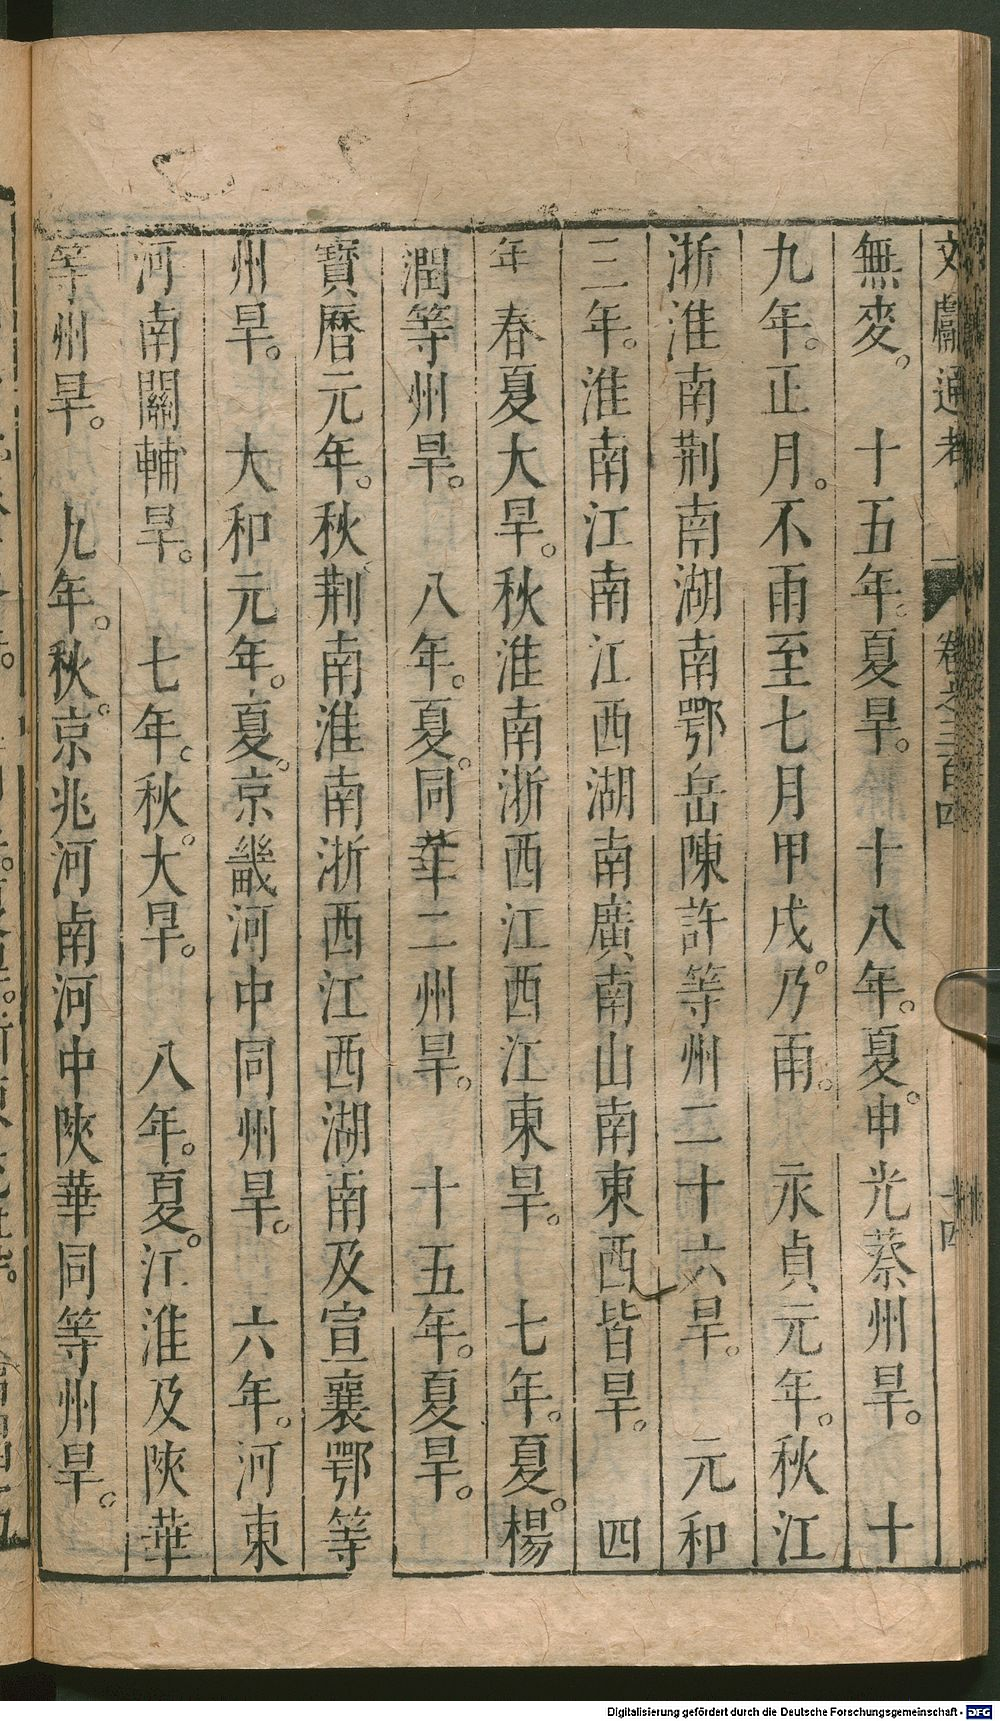 文獻通考 卷之三百四 十四
無麥。 十五年。夏旱。 十八年。夏。申光蔡州旱。 十
九年。正月。不雨至七月甲戌。乃雨。 永貞元年。秋江
浙淮南荆南湖南鄂岳陳許等州二十六旱。 元和
三年。淮南江南江西湖南廣南山南東西皆旱。 四
年春夏大旱。秋淮南浙西江西江東旱。 七年。夏。楊
潤等州旱。 八年。夏。同華二州旱。 十五年。夏旱。
寳曆元年。秋荆南淮南浙西江西湖南及宣襄鄂等
州旱。 大和元年。夏。京畿河中同州旱。 六年。河東
河南關輔旱。 七年。秋。大旱。 八年。夏。江淮及陝華
等州旱。 九年。秋。京兆河南河中陝華同等州旱。
Digitalisierung gefördert durch die Deutsche Forschungsgemeinschaft - DFG